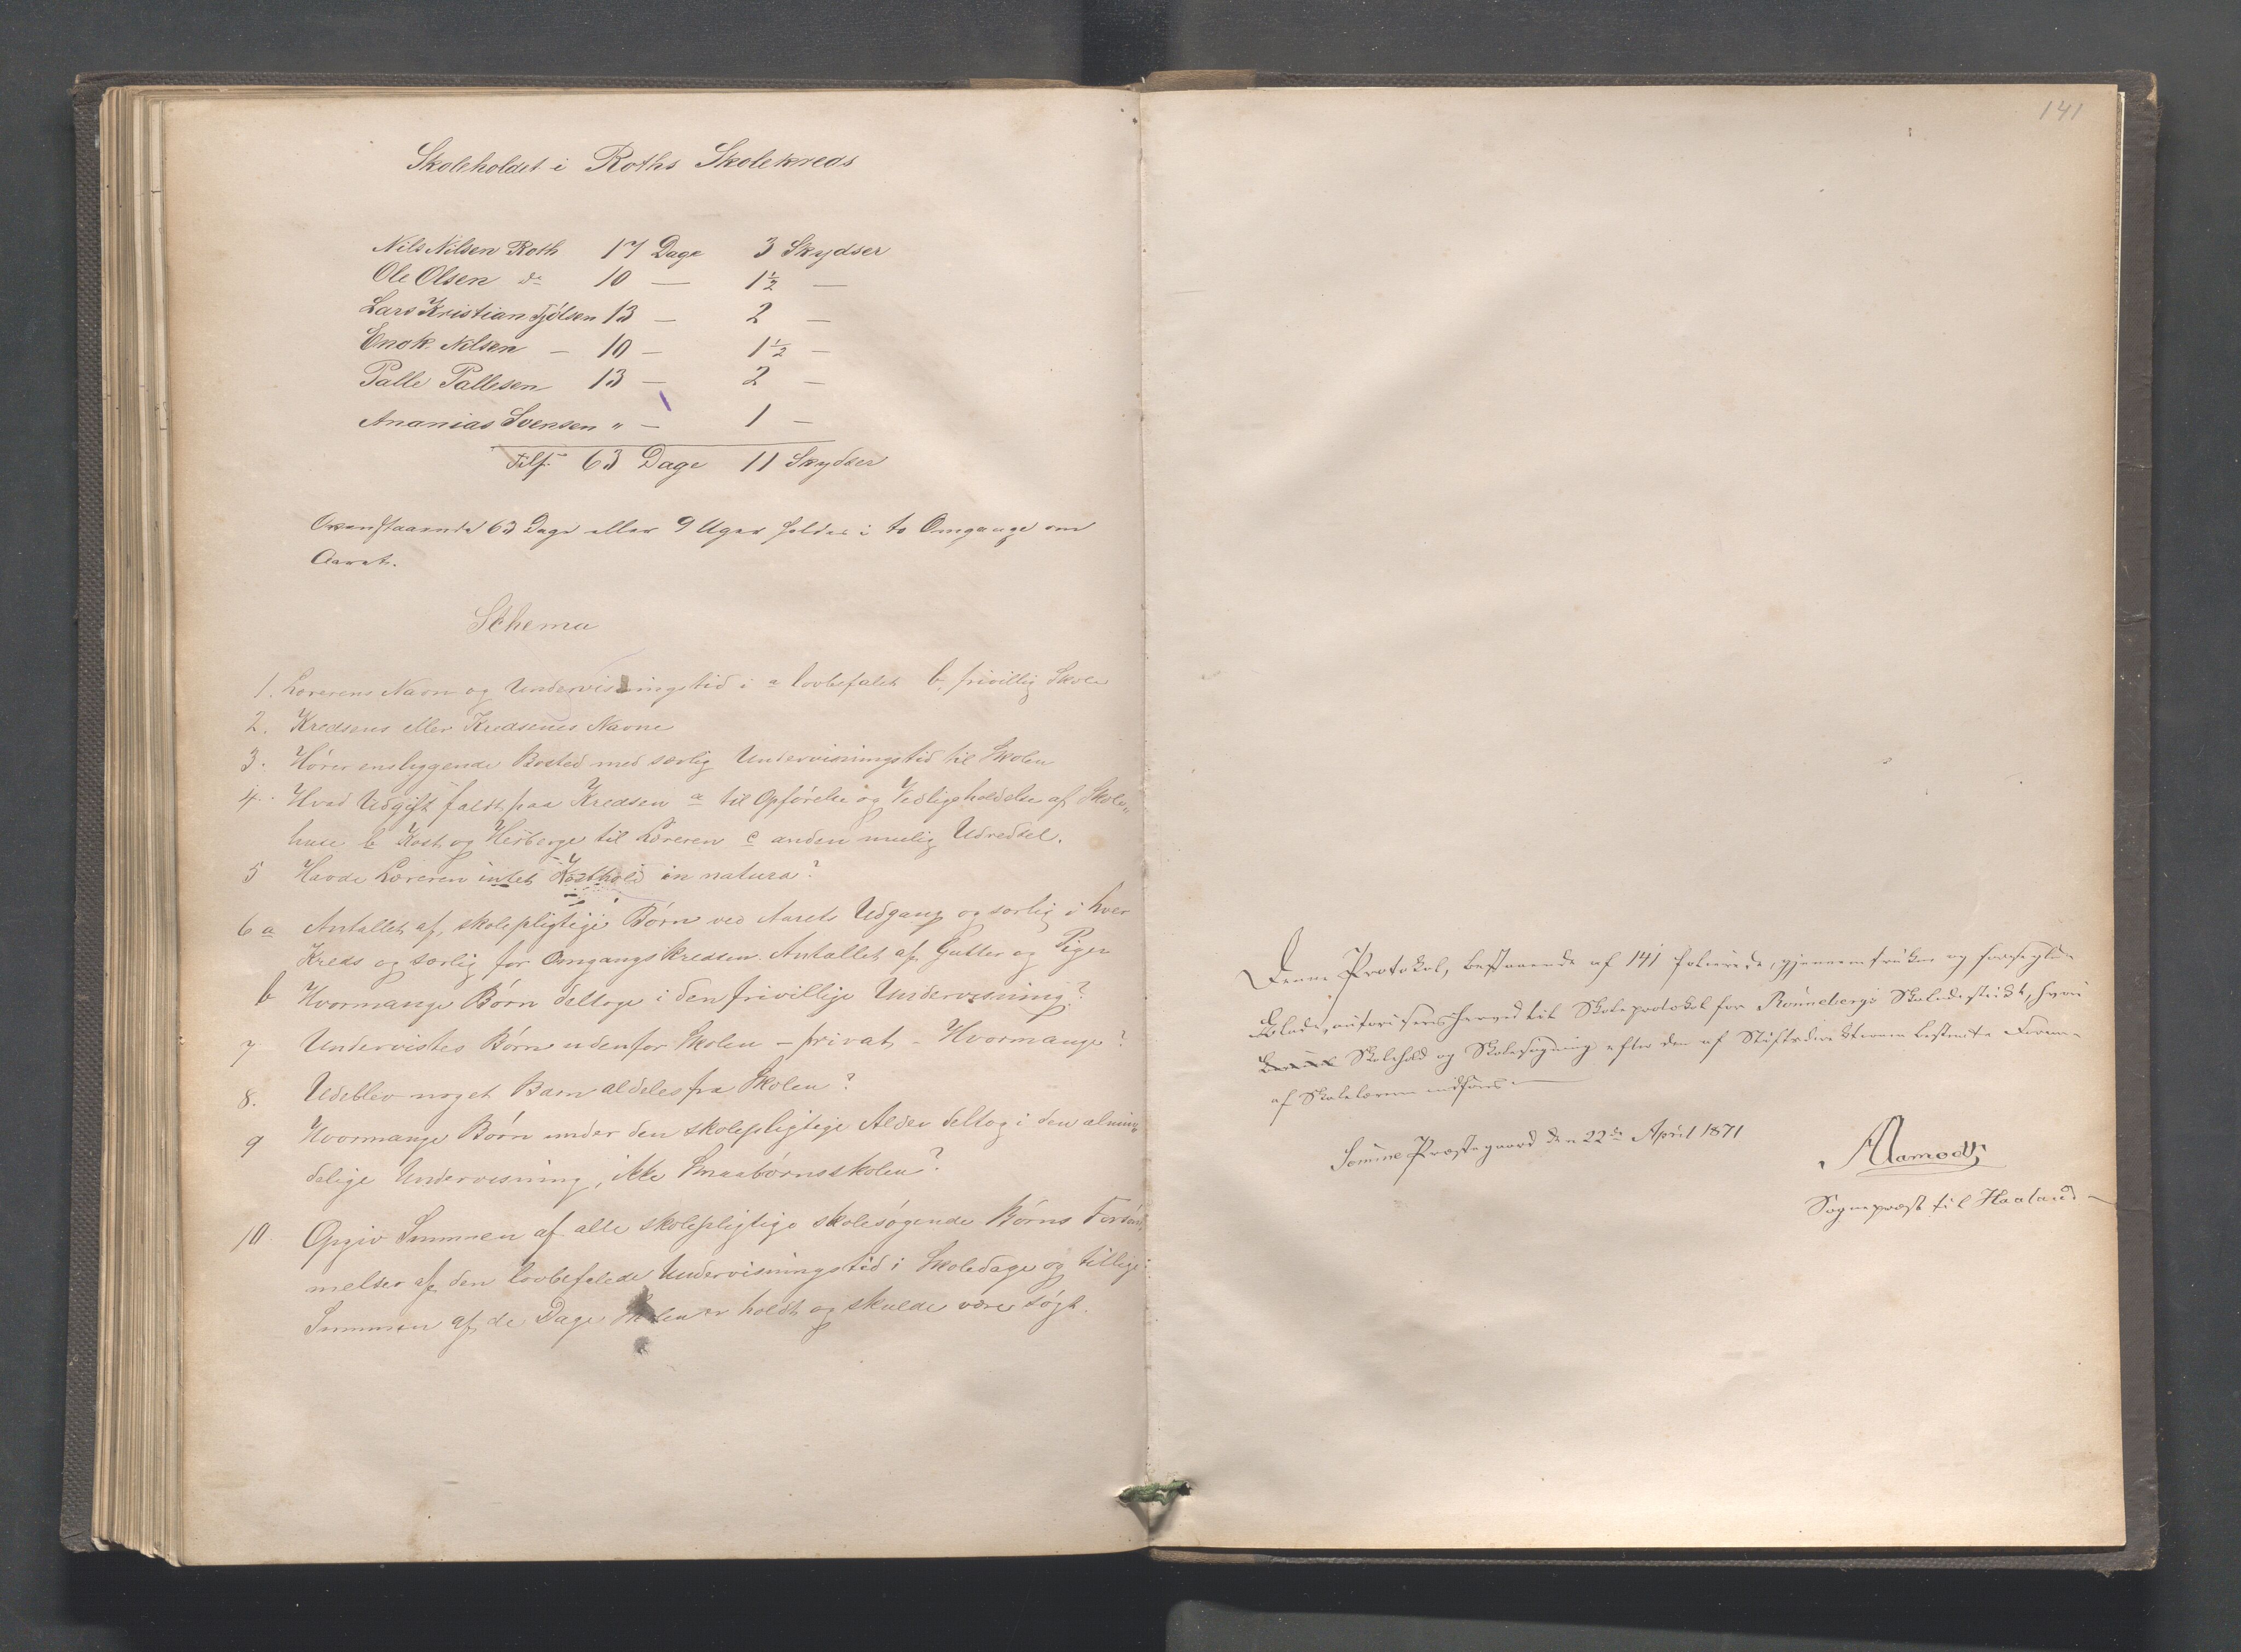 Skoleholdet i Roths Skolekreds
Nils Nilsen Roth 17 Dage 3 Skydser
Ole Olsen do 10 — 1½ —
Lars Kristian Tjølsen 13 — 2 —
Enok Nilsen — 10 — 1½ —
Palle Pallesen 13 — 2 —
Ananias Svensen " — 1 —
Tils. 63 Dage 11 Skydser
Ovenstaaende 63 Dage eller 9 Uger holdes i to Omgange om
Aaret.
Schema
1. Lærerens Navn og Undervisningstid i a lovbefalet b, frivillig Skole
2. Kredsens eller Kredsenes Navne
3. Hører ensliggende Bosted med særlig Undervisningstid til Skolen
4. Hvad Udgift faldt paa Kredsen a til Opførelse og Vedligeholdelse af Skole„
huse b Kost og Herberge til Læreren c anden mulig Udredsel.
5 Havde Læreren intet Kosthold in natura?
6 a Antallet af skolepligtige Børn ved Aarets Udgang og særlig i hver
Kreds og særlig for Omgangskredsen. Antallet af Gutter og Piger
b Hvormange Børn deltoge i den frivillige Undervisning?
7 Undervistes Børn udenfor Skolen – privat – Hvormange?
8. Udeblev noget Barn aldeles fra Skolen?
9 Hvormange Børn under den skolepligtige Alder deltog i den almin„
delige Undervisning, ikke Smaabørnsskolen?
10. Opgiv Summen af alle skolepligtige skolesøgende Børns Forsøm„
melser af den lovbefalede Undervisningstid i Skoledage og tillige
Summen af de Dage Skolen er holdt og skulde være søgt.
141
Denne Protokol, bestaaende af 141 folierede, gjennemtrukne og forseglede
Blade, autoriseres herved til Skoleprotokol for Rønnebergs Skoledistrikt, hvori
Skolehold og Skolesøgning efter den af Stiftsdirektionen bestemte Form
af Skolelæreren indføres —
Somme Præstegaard den 22de April 1871
Aamodt
Sognepræst til Haaland